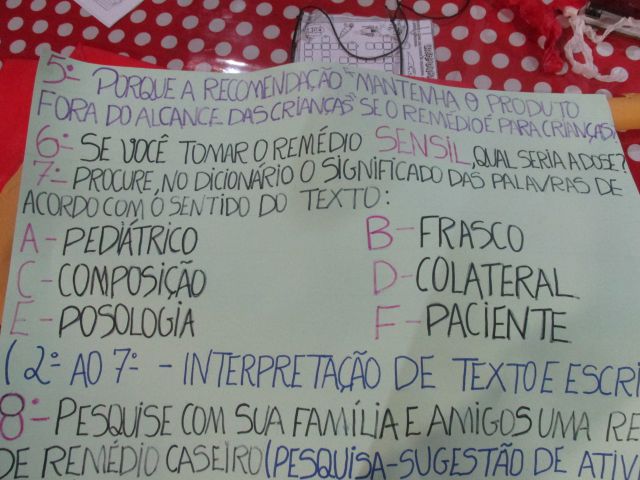 5º- PORQUE A RECOMENDAÇÃO "MANTENHA O PRODUTO
FORA DO ALCANCE DAS CRIANÇAS" SE O REMÉDIO É PARA CRIANÇAS?
6º- SE VOCÊ TOMAR O REMÉDIO SENSIL, QUAL SERIA A DOSE?
7º- PROCURE, NO DICIONÁRIO O SIGNIFICADO DAS PALAVRAS DE
ACORDO COM O SENTIDO DO TEXTO:
A - PEDIÁTRICO B - FRASCO
C - COMPOSIÇÃO D - COLATERAL
E - POSOLOGIA F - PACIENTE
(2º AO 7º - INTERPRETAÇÃO DE TEXTO E ESCRI
8º- PESQUISE COM SUA FAMÍLIA E AMIGOS UMA RE
DE REMÉDIO CASEIRO (PESQUISA-SUGESTÃO DE ATIV